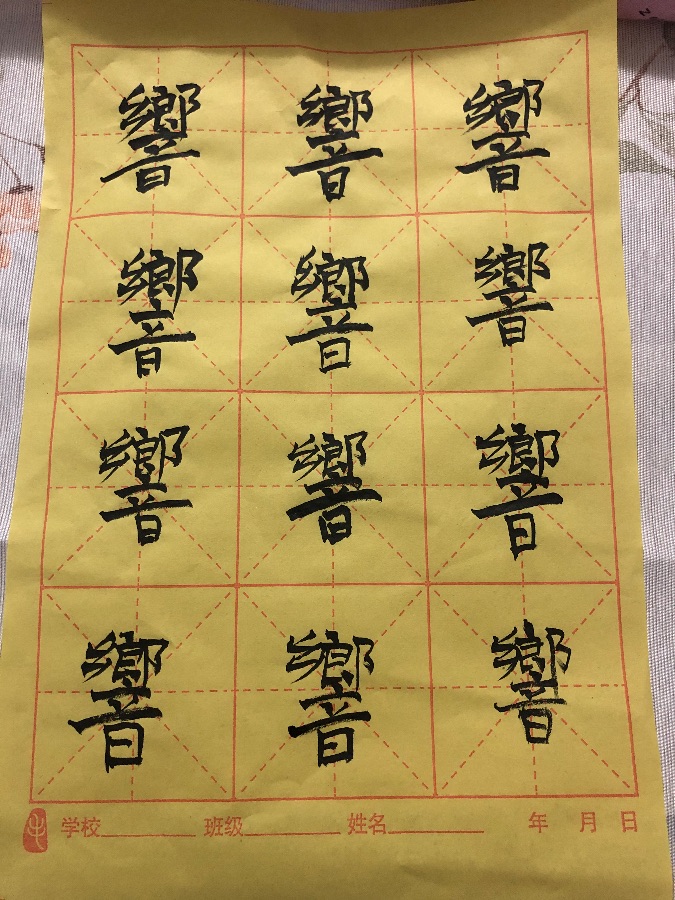 響響響
響響響
響響響
響響響
学校 班级 姓名 年 月 日